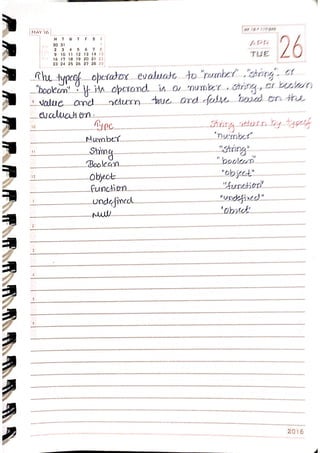 MAY'16
M T W T F S S
30 31
2 3 4 5 6 7 8
9 10 11 12 13 14 15
16 17 18 19 20 21 22
23 24 25 26 27 28 29
APR
TUE
26
The typeof operator evaluate to "number", "string", or
"boolean". if its operand is a number, string, or boolean
value and return true and false based on the
evaluation.
Type String return by typeof
Number "number"
String "String"
Boolean "boolean"
Object "object"
Function "function"
undefined "undefined"
Null "object"
2016